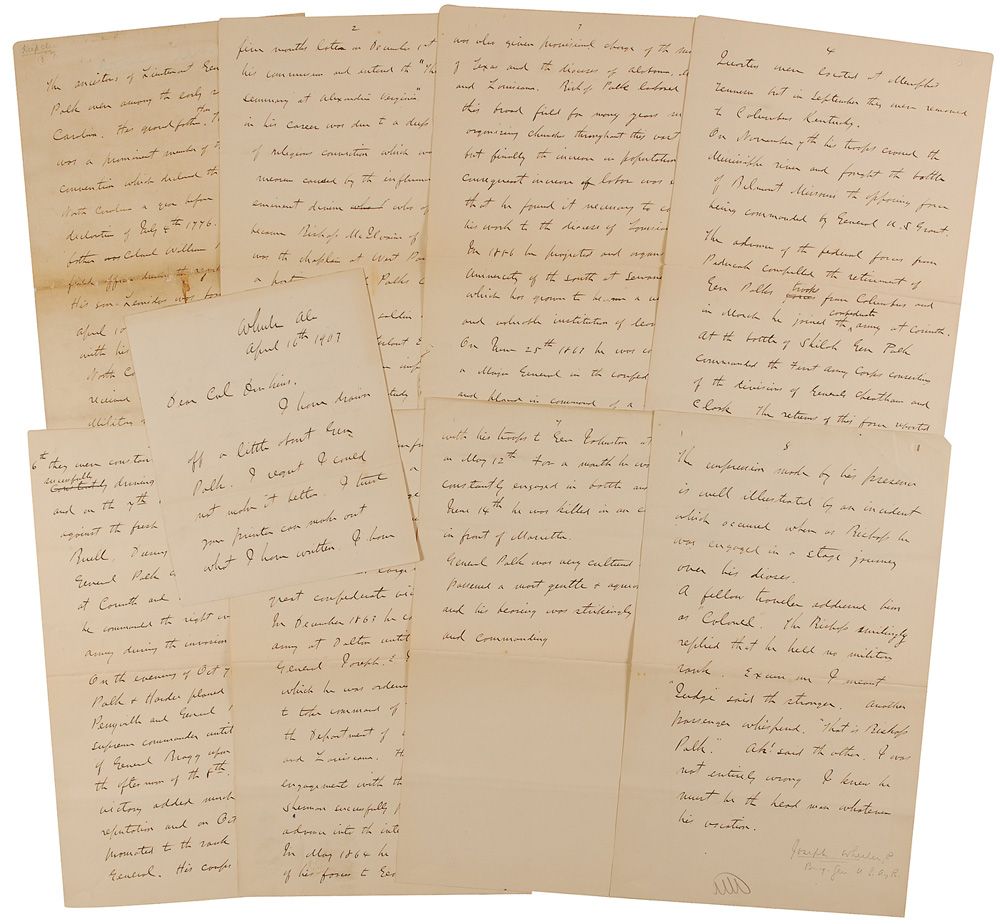 The ancestors of Lieutenant Gen
Polk were among the early
Carolina. His grandfather
was a prominent member of
convention which declared the
North Carolina a year before
declaration of July 4th 1776.
father was Colonel William
field officer during the
His son Leonidas was born
April 10
with his
North Ca
received
Military
2
five months later in December
his commission and entered the "Th
seminary at Alexandria Virginia"
in his career was due to a deep
of religious conviction which w
measure caused by the influence
eminent divine who of
became Bishop McIlvaine of
was the chaplain at West Po
3
was also given provisional charge of the
of Texas and the dioceses of Alabama,
and Louisiana. Bishop Polk labored
this broad field for many years
organizing churches throughout this vast
but finally the increase in population
consequent increase of labor was
that he found it necessary to co
his work to the diocese of Louisian
In 1856 he projected and organi
University of the South at Sewan
which has grown to be a
and valuable institution of lear
On June 25th 1861 he was co
a Major General in the confed
and placed in command of a
4
Quarters were located at Memphis
Tennessee but in September they were removed
to Columbus Kentucky.
On November 7th his troops crossed the
Mississippi river and fought the battle
of Belmont Missouri the opposing force
being commanded by General U. S. Grant.
The advance of the federal forces from
Paducah compelled the retirement of
Gen Polks troops from Columbus and
in March he joined the confederate army at Corinth.
At the battle of Shiloh Gen Polk
commanded the First Army Corps consisting
of the divisions of Generals Cheatham and
Clark The returns of this force reported
Wheeler Ala
April 16th 1903
Dear Col Dinkins.
I have drawn
off a little about Gen
Polk. I regret I could
not make it better. I trust
your printer can make out
what I have written. I have
6th they were constan
successfully
Constantly driving
and on the 7th
against the fresh
Buell. During
General Polk
at Corinth and
he commanded the right
army during the invasion
On the evening of Oct 7
Polk & Hardee placed
Perryville and General
supreme commander until
of General Bragg upon
the afternoon of the 8th.
victory added much
reputation and on Oct
promoted to the rank
General. His corps
great confederate vic
In December 1863 he co
army at Dalton until
General Joseph E. J
which he was ordered
to take command of
the Department of
and Louisiana. Th
engagement with th
Sherman successfully
advance into the inte
In May 1864 he
of his forces to Gen
with his troops to Gen Johnston at
on May 12th For a month he was
constantly engaged in battle and
June 14th he was killed in an
in front of Marietta.
General Polk was very cultured
possessed a most gentle &
and his bearing was strikingly
and commanding
8
The impression made by his presence
is well illustrated by an incident
which occured when as Bishop he
was engaged in a stage journey
over his dioces.
A fellow traveler addressed him
as "Colonel". The Bishop smilingly
replied that he held no military
rank. Excuse me I meant
"Judge" said the stranger. Another
passenger whispered. "That is Bishop
Polk." Ah! said the other. I was
not entirely wrong I knew he
must be the head man whatever
his vocation.
Joseph Wheeler
Brig. Gen U.S.A.